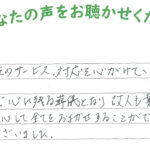 なたの声をお聴かせくだ
のサービス、対応を心がけてい
心に残る葬儀となり故人も
心して全てをおまかせすることがで
ざいました。